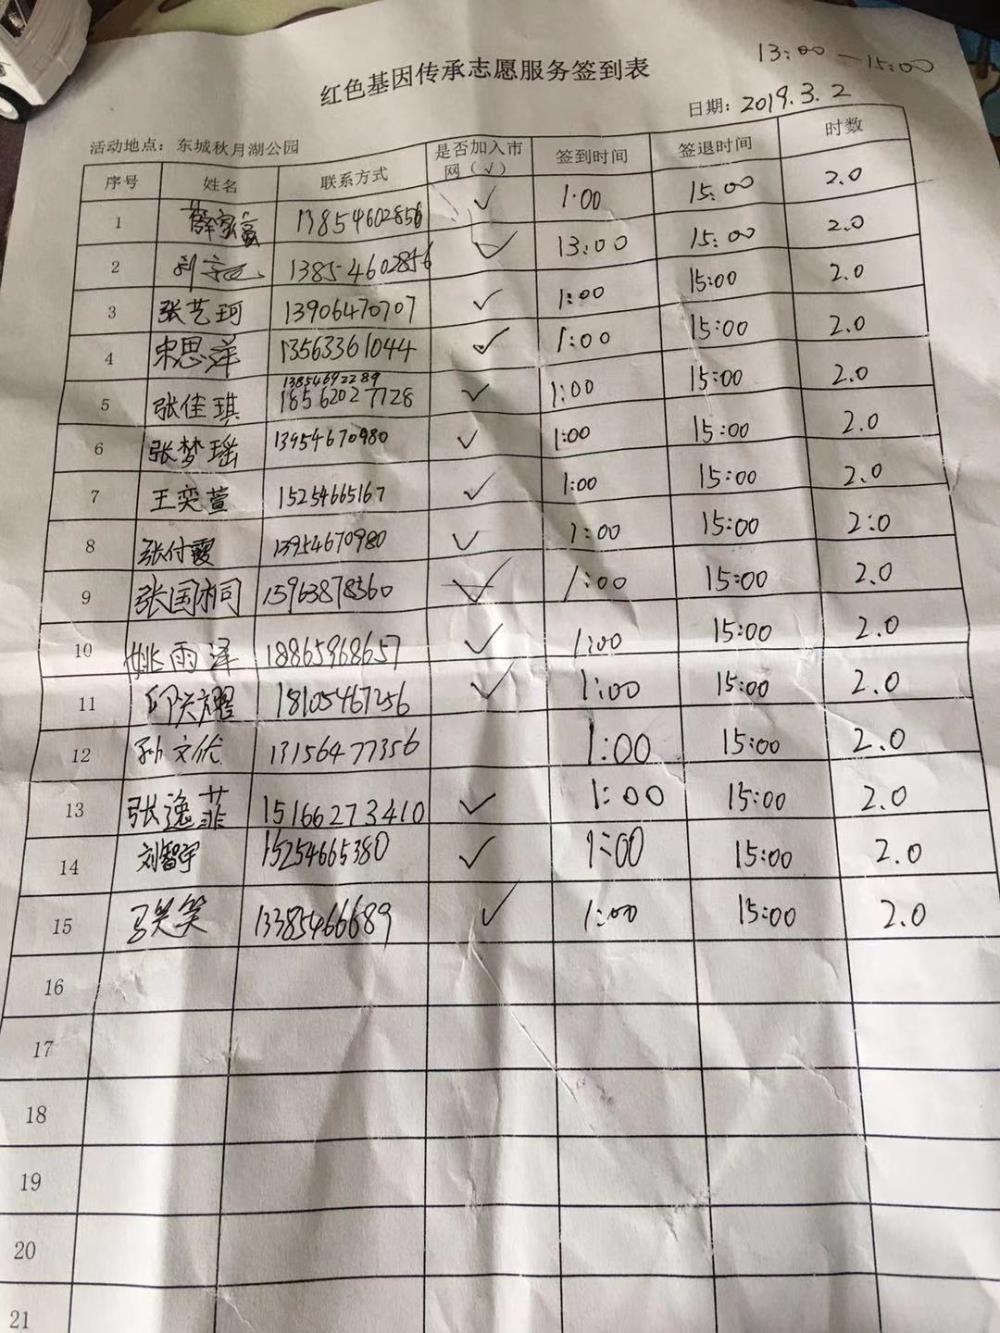 13:00—15:00
红色基因传承志愿服务签到表
日期: 2019.3.2
活动地点: 东城秋月湖公园
序号 姓名 联系方式 是否加入市网(√) 签到时间 签退时间 时数
1 薛家嬴 13854602856 √ 1:00 15:00 2.0
2 刘 13854602856 √ 13:00 15:00 2.0
3 张艺珂 13906470707 √ 1:00 15:00 2.0
4 宋思洋 13563361044 √ 1:00 15:00 2.0
5 张佳琪 13854692289 18562027728 √ 1:00 15:00 2.0
6 张梦瑶 13954670980 √ 1:00 15:00 2.0
7 王奕萱 15254665167 √ 1:00 15:00 2.0
8 张付霞 13954670980 √ 1:00 15:00 2:0
9 张国桐 15963878560 √ 1:00 15:00 2.0
10 姚雨泽 18865968657 √ 1:00 15:00 2.0
11 邱关耀 18105467256 √ 1:00 15:00 2.0
12 孙文伦 13156477356 1:00 15:00 2.0
13 张逸菲 15166273410 √ 1:00 15:00 2.0
14 刘智宇 15254665380 √ 1:00 15:00 2.0
15 马笑笑 13385466689 √ 1:00 15:00 2.0
16
17
18
19
20
21